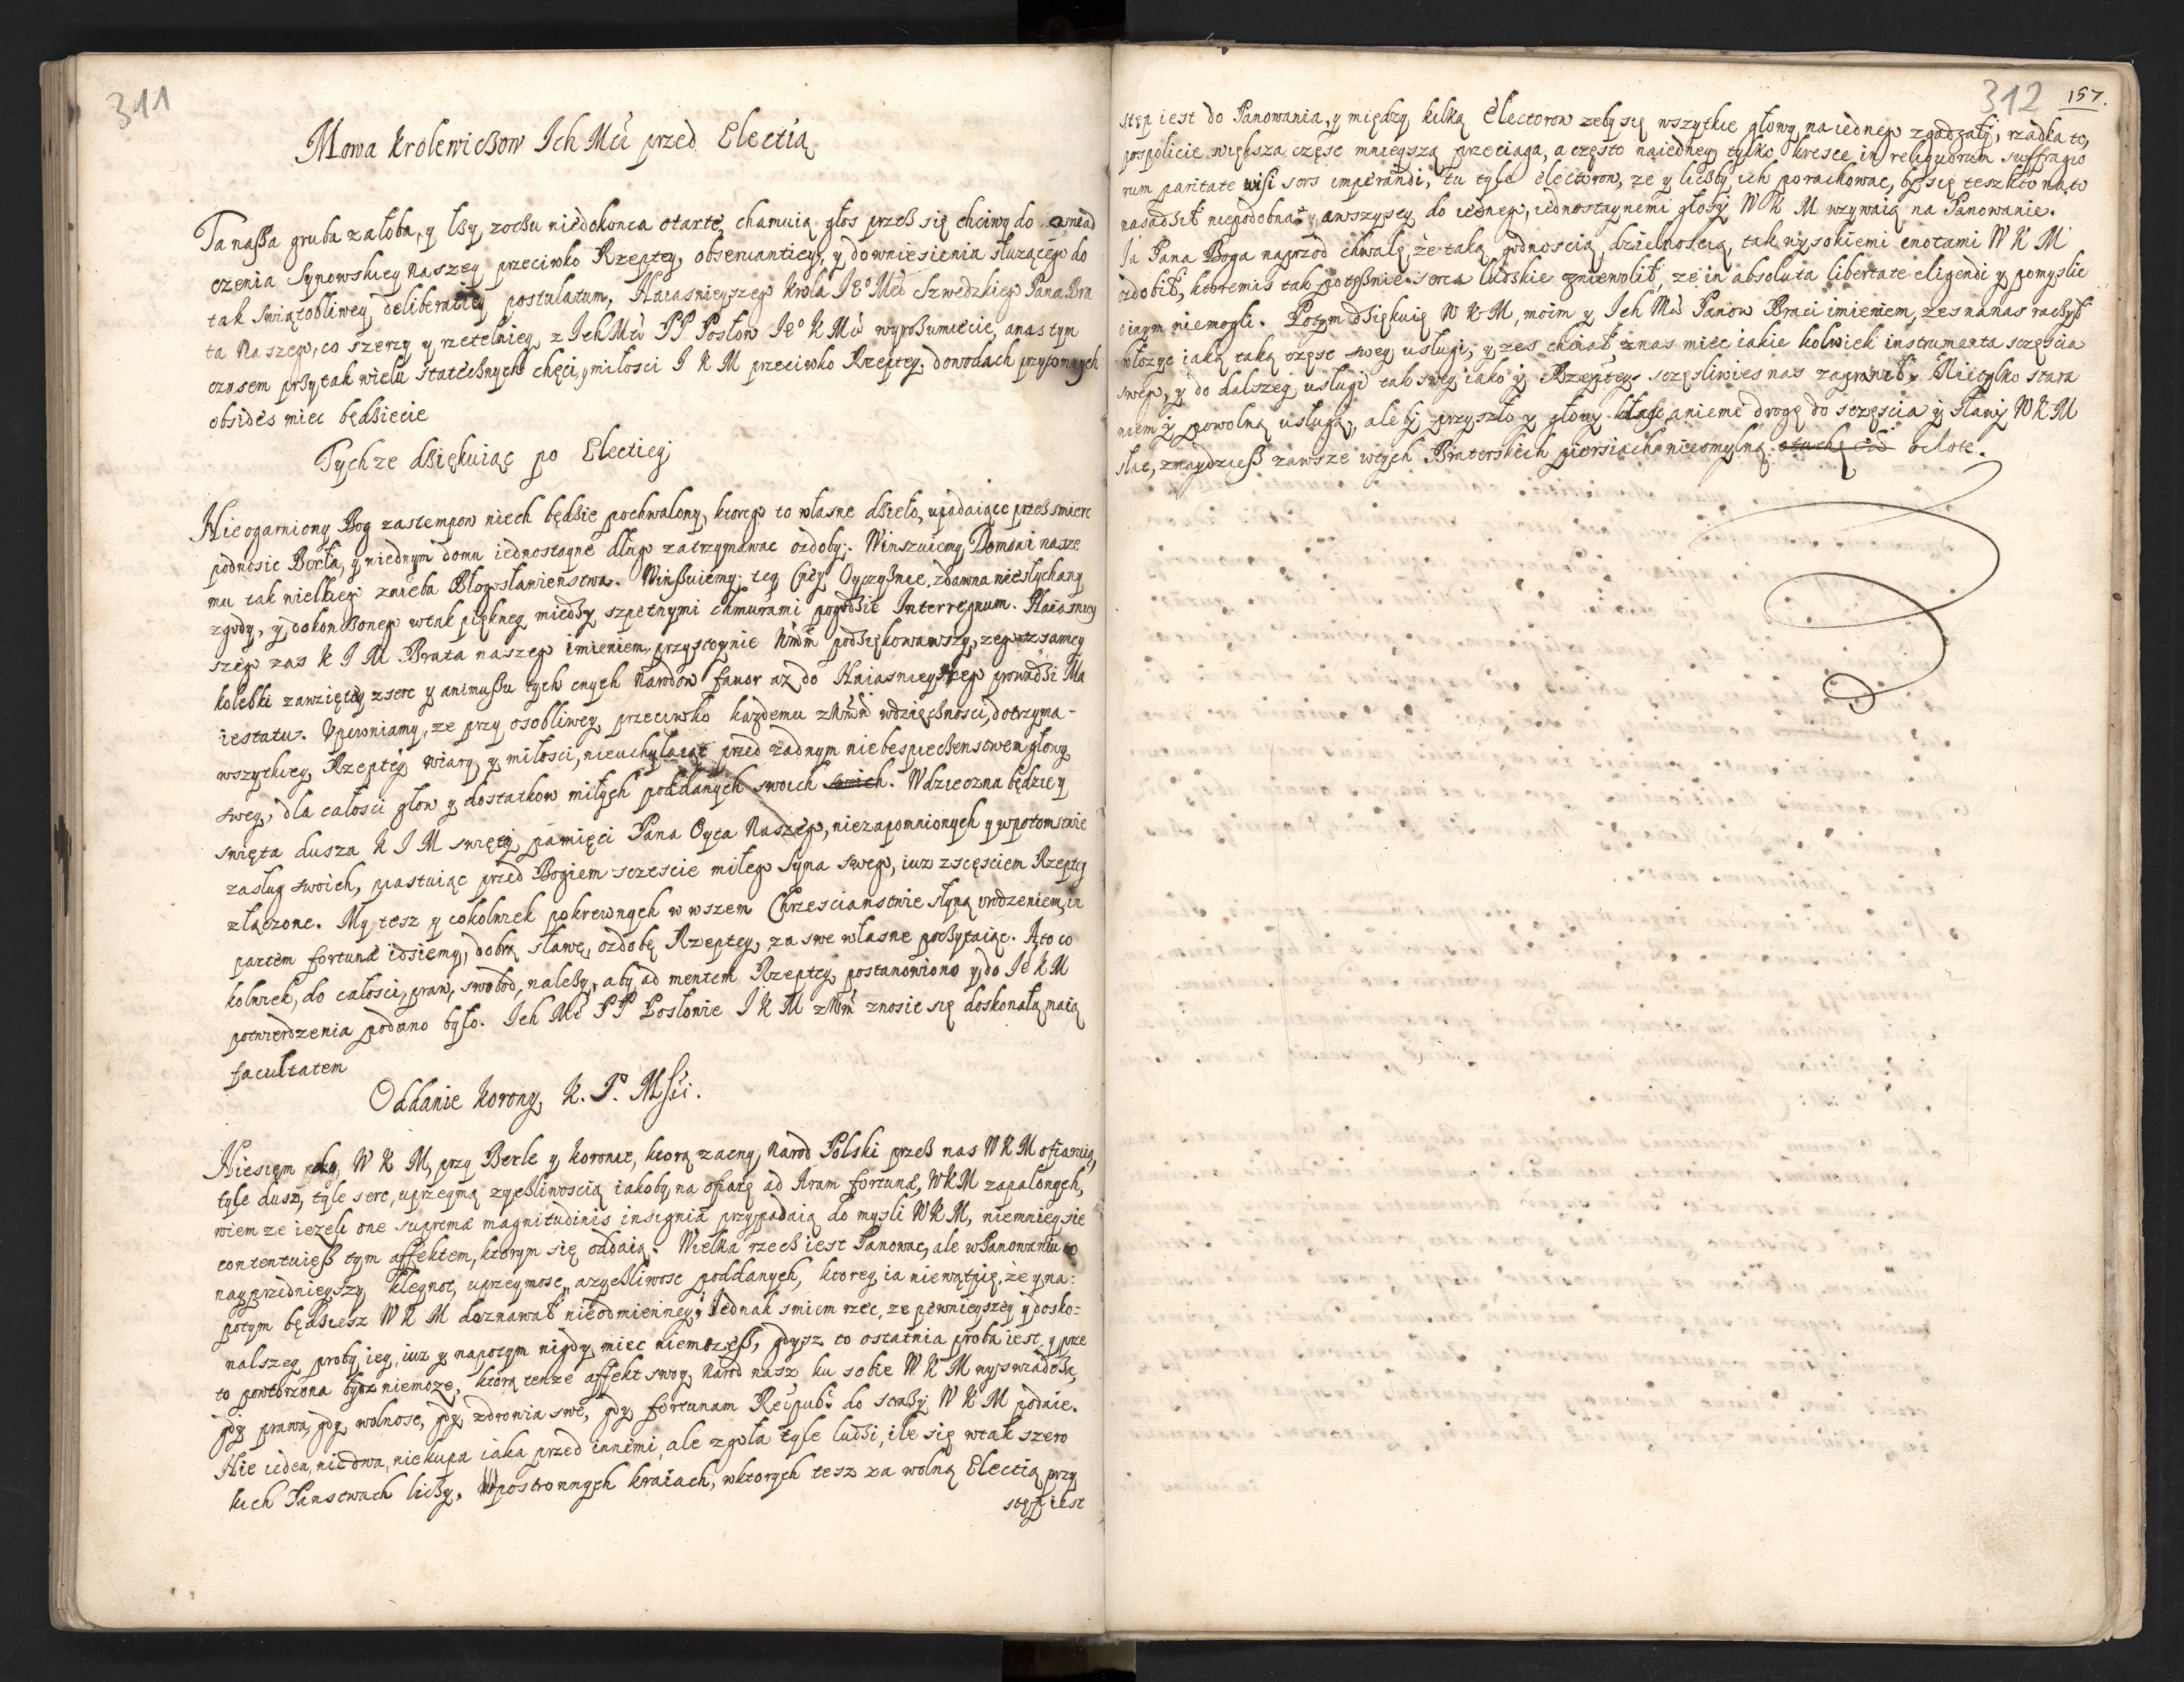 311
Mowa Krolewiczow Ich Mci przed Electią
Ta nasza gruba załoba, y łzy zoczu niedokonca otarte, chamuią głos przesz się chciwy do oswiad
czenia Synowskiey naszey przeciwko Rzeptey, obseruantiey, y downiesienia słuzącego do
tak swiątobliwey deliberatiey postulatum, Naiasnieyszego Krola Je° Mci Szwedzkiego Pana Bra
ta Naszego, co szerzy y rzetelniey z Ich Mciow PP Posłow Je° K Mci wyrozumiecie, a nas tym
czasem przy tak wielu statecznych chęci, y miłosci J K M przeciwko Rzeptey, dowodach przytomnych
obsides miec będziecie
Tychze dziękuiąc po Electiey
Nieogarniony Bog zastempow niech będzie pochwalony, ktorego to własne dzieło, upadaiące przesz smierc
podnosic Berła, y wiednym domu iednostayne długo zatrzymawac ozdoby. Winszuiemy Domowi nasze
mu tak wielkiego znieba Błogosławienstwa. Winszuiemy tey Cney Oyczyznie, zdawna niesłychany
zgody, y dokonczonego wtak piękney miedzy szpetnymi chmurami pogodzie Interregnum. Naiasniey
szego zas K J M Brata naszego imieniem, przystoynie Wmm podziękowawszy, zego zsamey
kolebki zawzięty zserc y animuszu tych cnych Narodow fauor az do Naiasnieyszego prowadzi Ma
iestatu. Upewniamy, ze przy osobliwey, przeciwko kazdemu zWmm wdzięcznosci, dotrzyma-
wszytkiey Rzeptey wiary y miłosci, nieuchylaiąc przed zadnym niebespieczenstwem głowy
swey, dla całosci głow y dostatkow miłych poddanych swoich swoich. Wdzieczna będzie y
swięta dusza K J M swięty pamięci Pana Oyca Naszego, niezapomnionych y wpotomstwie
zasług swoich, piastuiąc przed Bogiem sczescie miłego Syna swego, iuz zsczęsciem Rzeptey
złączone. My tesz y cokolwiek pokrewnych w wszem Chrzescianstwie słyną urodzeniem, in
partem fortunæ idziemy, dobrą sławę, ozdobę Rzeptey, za swe własne poczytaiąc. A to co
kolwiek, do całosci, praw, swobod, nalezy, aby ad mentem Rzeptey postanowiono y do Je K M
potwierdzenia podano było. Ich Mc PP Posłowie J K M zWm znosic się doskonałą maią
facultatem
Oddanie Korony K. J°. Msci.
Niesięm W K M, przy Berle y koronie, ktorą zacny Narod Polski przesz nas W K M ofiaruie,
tyle dusz, tyle serc, uprzeymą zyczliwoscią iakoby na ofiarę ad Aram fortunæ, WKM zapalonych,
wiem ze iezeli one supremæ magnitudinis insignia przypadaią do mysli WKM, niemniey sie
contentuiesz tym affektem, ktorym się oddaią. Wielka rzecz iest Panowac, ale w Panowaniu to
nayprzednieyszy kleynot, uprzeymosc, a zyczliwosc poddanych, ktorey ia niewątpię, ze y na:
potym będziesz W K M doznawał nieodmienney; Iednak smiem rzec, ze pewnieyszey y dosko=
nalszey proby iey, iuz y napotym nigdy miec niemozesz, gdysz to ostatnia proba iest, y prze
to powtorzona bydz niemoze, ktorą tenze affekt swoy Narod nasz ku sobie W K M wyswiadcza,
gdy prawa, gdy wolnosc, gdy zdrowia swe, gdy fortunam Reipubc do strazy W K M podaie.
Nie ieden, nie dwa, nie kupa iaka przed innemi, ale zgoła tyle ludzi, ile się wtak szero
kich Panstwach liczy. Wpostronnych kraiach, wktorych tesz za wolną Electią przy
stęp iest
312 157.
stęp iest do Panowania, y między kilką Electorow zeby się wszytkie głowy naiednego zgadzały, rzadka to,
pospolicie większa częsc mnieyszą przeciąga, a często naiedney tylko kresce in reliquorum suffragio
rum paritate wisi sors imperandi, tu tyle electorow, ze y liczby ich porachowac, by się tesz kto na to
nasadził niepodobna, a wszyscy do iednego, iednostaynemi głosy W K M wzywaią na Panowanie.
Ja Pana Boga naprzod chwalę, że taką godnoscią, dzielnoscią, tak wysokiemi cnotami W K M
ozdobił, ktoremis tak potęznie serca ludzkie zniewolił, ze in absoluta libertate eligendi y pomyslic
oinym niemogli. Potym dziękuię W K M, moim y Ich Mciow Panow Braci imieniem, zes nanas raczył
włozyc iaką taką częsc swey usługi, y zes chciał, znas miec iakie kolwiek instrumenta sczęscia
swego, y do dalszey usługi tak swey iako y Rzeptey sczęsliwies nas zaprawił. Nietylko stara
niem y powolną usługą, ale by przyszło y głowy kłasc, aniemi drogę do sczęscia y sławy W K M
słac, znaydziesz zawsze wtych Braterskich piersiach nieomylną otuchę ochotę.